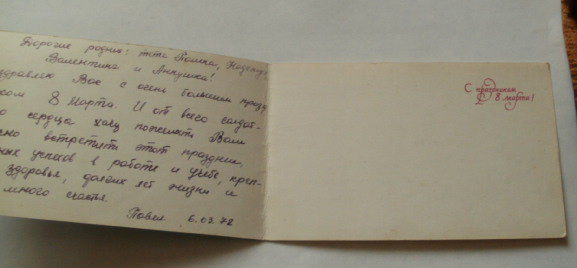 Дорогие родные: тётя Полина, Надежда,
Валентина и Аннушка!
здравляю Вас с очень большим празд-
ком 8 Марта. И от всего солдат-
о сердца хочу пожелать Вам
но встретить этот праздник,
ных успехов в работе и учёбе, креп-
здоровья, долгих лет жизни и
много счастья.
Павел 6.03.72
С праздником
8 марта!